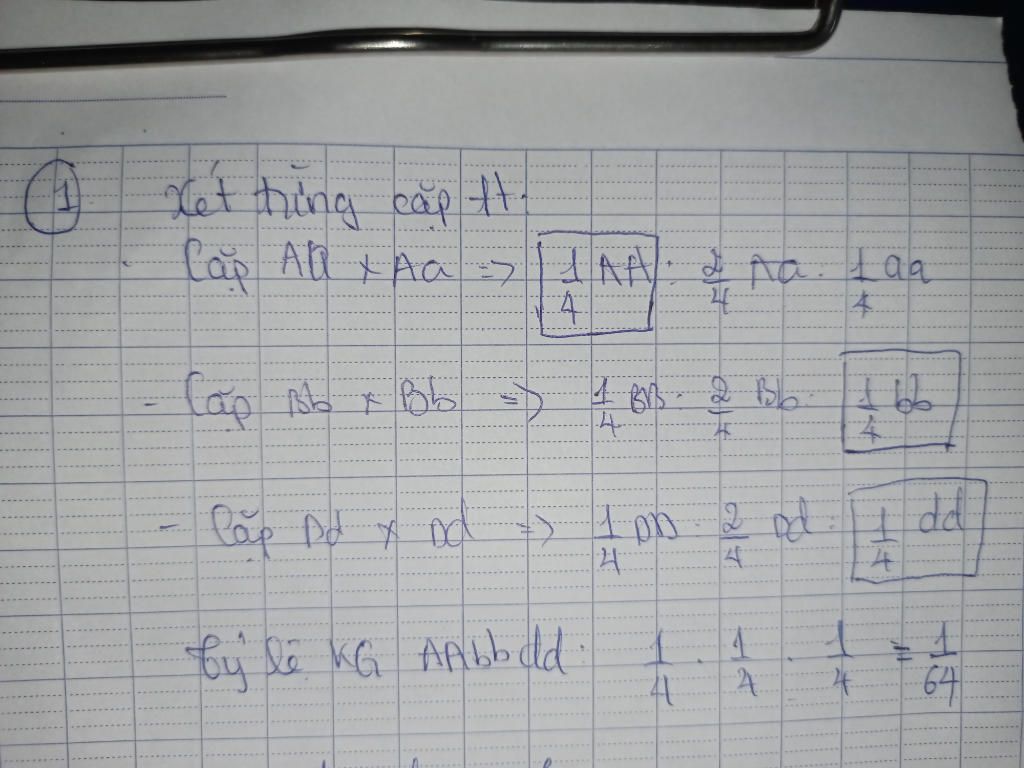 1 Xét từng cặp tt.
- Cặp Aa x Aa => 1/4 AA : 2/4 Aa : 1/4 aa
- Cặp Bb x Bb => 1/4 BB : 2/4 Bb : 1/4 bb
- Cặp Dd x Dd => 1/4 DD : 2/4 Dd : 1/4 dd
tỷ lệ KG AAbbdd: 1/4 . 1/4 . 1/4 = 1/64